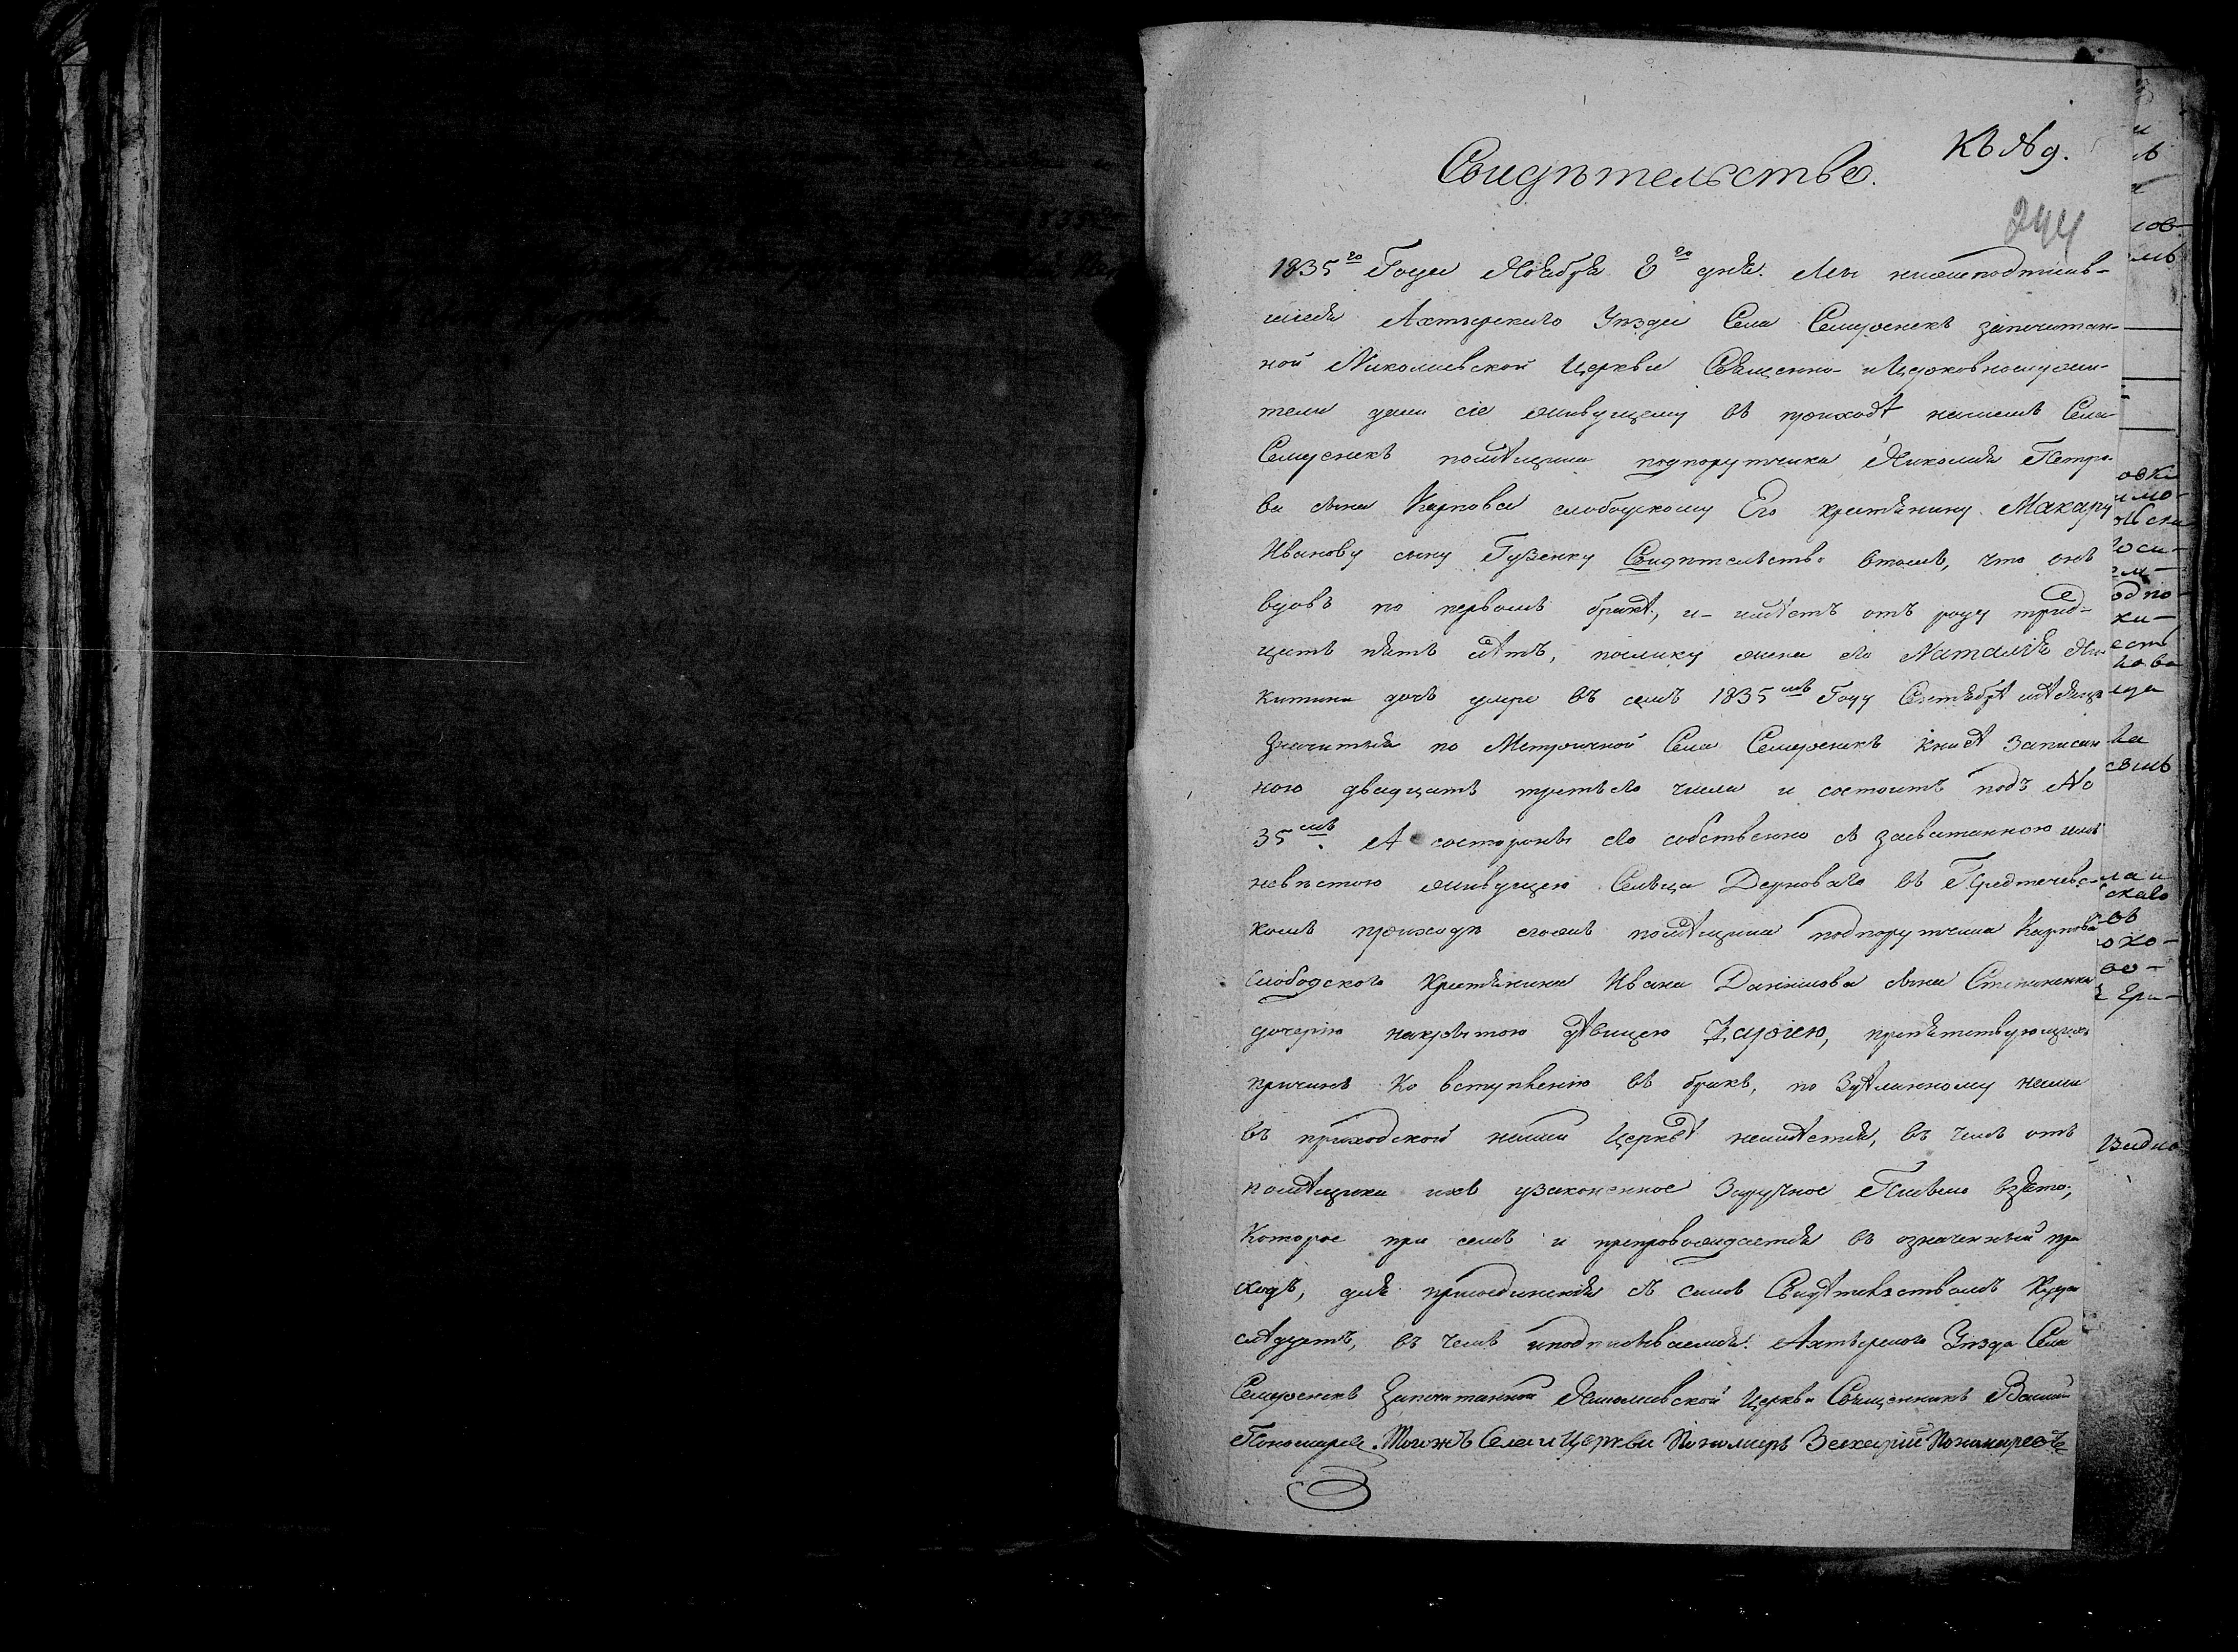 Къ № 9.
Свидѣтельство.
244
1835го Года Ноября 8го дня. Мы нижеподписав-
шіися Ахтырскаго Уѣзда Села Семеренекъ запечатан-
ной Николаевской Церкви Священно- и Церковнослужи-
тели дали сіе живущему въ приходѣ нашемъ Села
Семеренекъ помѣщика подпорутчика Николая Петро-
ва сына Карпова слободскому Его крестянину Макару
Иванову сыну Гузенку Свидѣтельство втомъ, что онъ
вдовъ по первомъ бракѣ, и имѣетъ отъ роду трид-
цать пять лѣтъ, поелику жена его Наталія Ни-
китина дочь умре въ семъ 1835мъ Году Сентябрѣ мѣсяцѣ
Значится по Метричной Села Семеренекъ книгѣ записан
ною двадцать третьего числа и состоитъ подъ №
35мъ. А состороны его собственно съ засватанною имъ
невѣстою живущею Сельца Дерноваго въ Предтечевс-
комъ приходѣ тогожъ помѣщика подпорутчика Карпова
слободского Крестянина Ивана Данилова сына Степаненка
дочерію дѣвицею Даріею, препятствующихъ
причинъ Ко вступленію въ бракъ, по Здѣланному нами
въ приходской нашей Церквѣ неимѣется, въ чемъ отъ
помѣщика ихъ узаконенное Заручное Письмо взято,
Которое при семъ и препровождается въ означенный при
ходъ, для присоединенія съ симъ Свидѣтельствомъ Куда
слѣдуетъ, въ чемъ иподписываемся. Ахтырского Уѣзда Села
Семеренекъ Запечатанной Николаевской Церкви Священникъ Васил
Пономаревъ. Тогожъ Села и Церкви Пономарь Захарій Пономаревъ